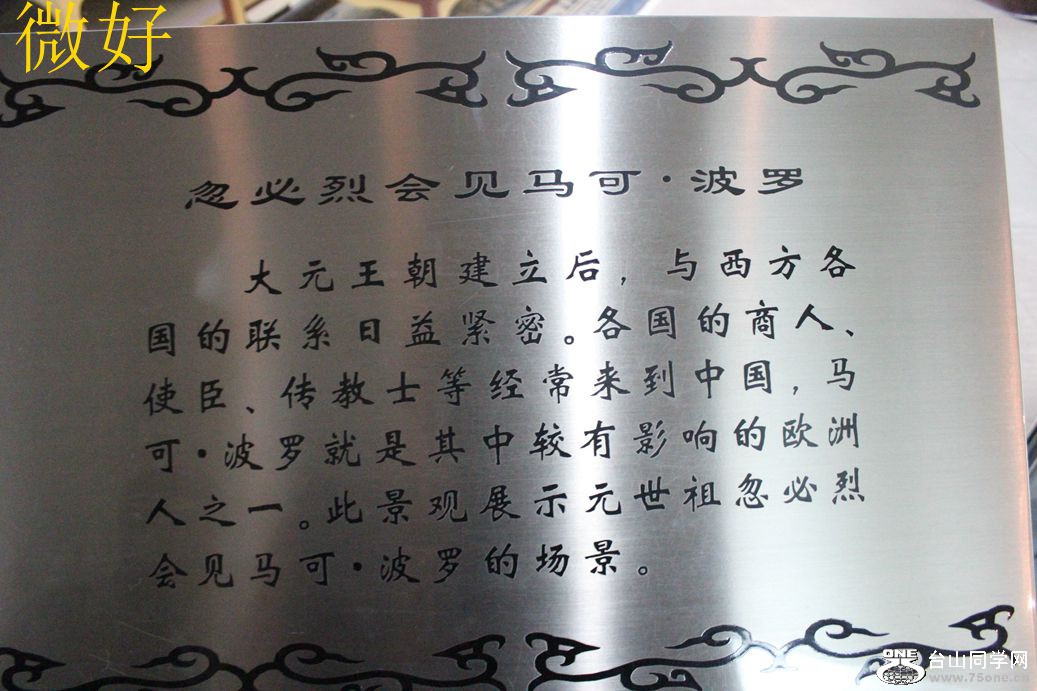 微好
忽必烈会见马可·波罗
大元王朝建立后，与西方各
国的联系日益紧密。各国的商人、
使臣、传教士等经常来到中国，马
可·波罗就是其中较有影响的欧洲
人之一。此景观展示元世祖忽必烈
会见马可·波罗的场景。
ONE
台山同学网
www.75one.cn